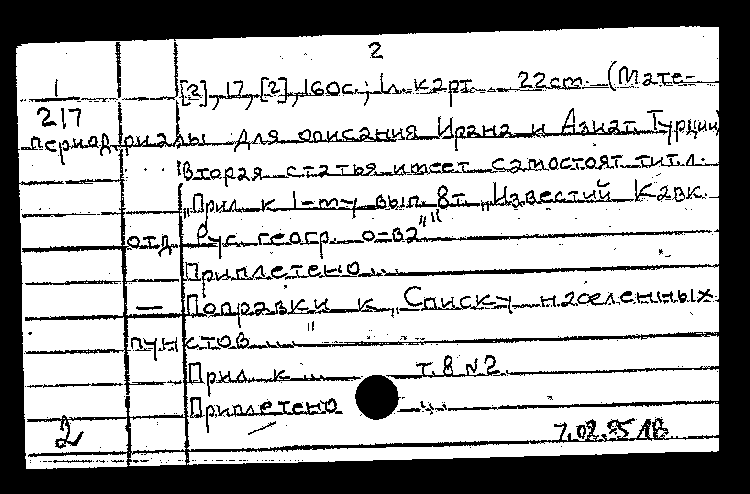 2
1 [2], 17, [2], 160с.; 1л. карт. 22cm. (Мате-
217
период. риалы для описания Ирана и Азиат. Турции)
Вторая статья имеет самостоят. тит. л.
„Прил. к 1-му вып. 8т. „Известий Кавк.
отд. Рус. геогр. о-ва""
Приплетено...
— Поправки к „Списку населенных
пунктов...."
Прил. к ... т. 8 №2.
Приплетено ...
2 7.02.95